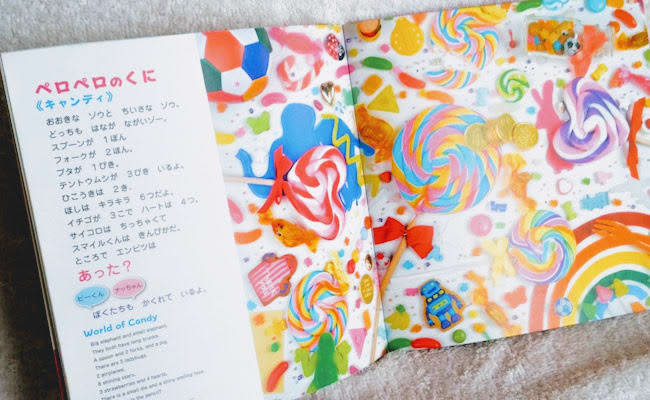 ペロペロのくに
《キャンディ》
おおきな ゾウと ちいさな ゾウ、
どっちも はなが ながいゾー。
スプーンが 1ぽん
フォークが 2ほん。
ブタが 1ぴき。
テントウムシが 3びき いるよ。
ひこうきは 2き。
ほしは キラキラ 6つだよ。
イチゴが 3こで ハートは 4つ。
サイコロは ちっちゃくて
スマイルくんは きんぴかだ。
ところで エンピツは
あった?
ピーくん ナッちゃん
ぼくたちも かくれて いるよ。
World of Candy
Big elephant and small elephant,
They both have long trunks.
A spoon and 2 forks, and a pig,
There are 3 ladybugs.
2 airplanes,
6 shining stars,
3 strawberries and 4 hearts,
There is a small die and a shiny smiling face.